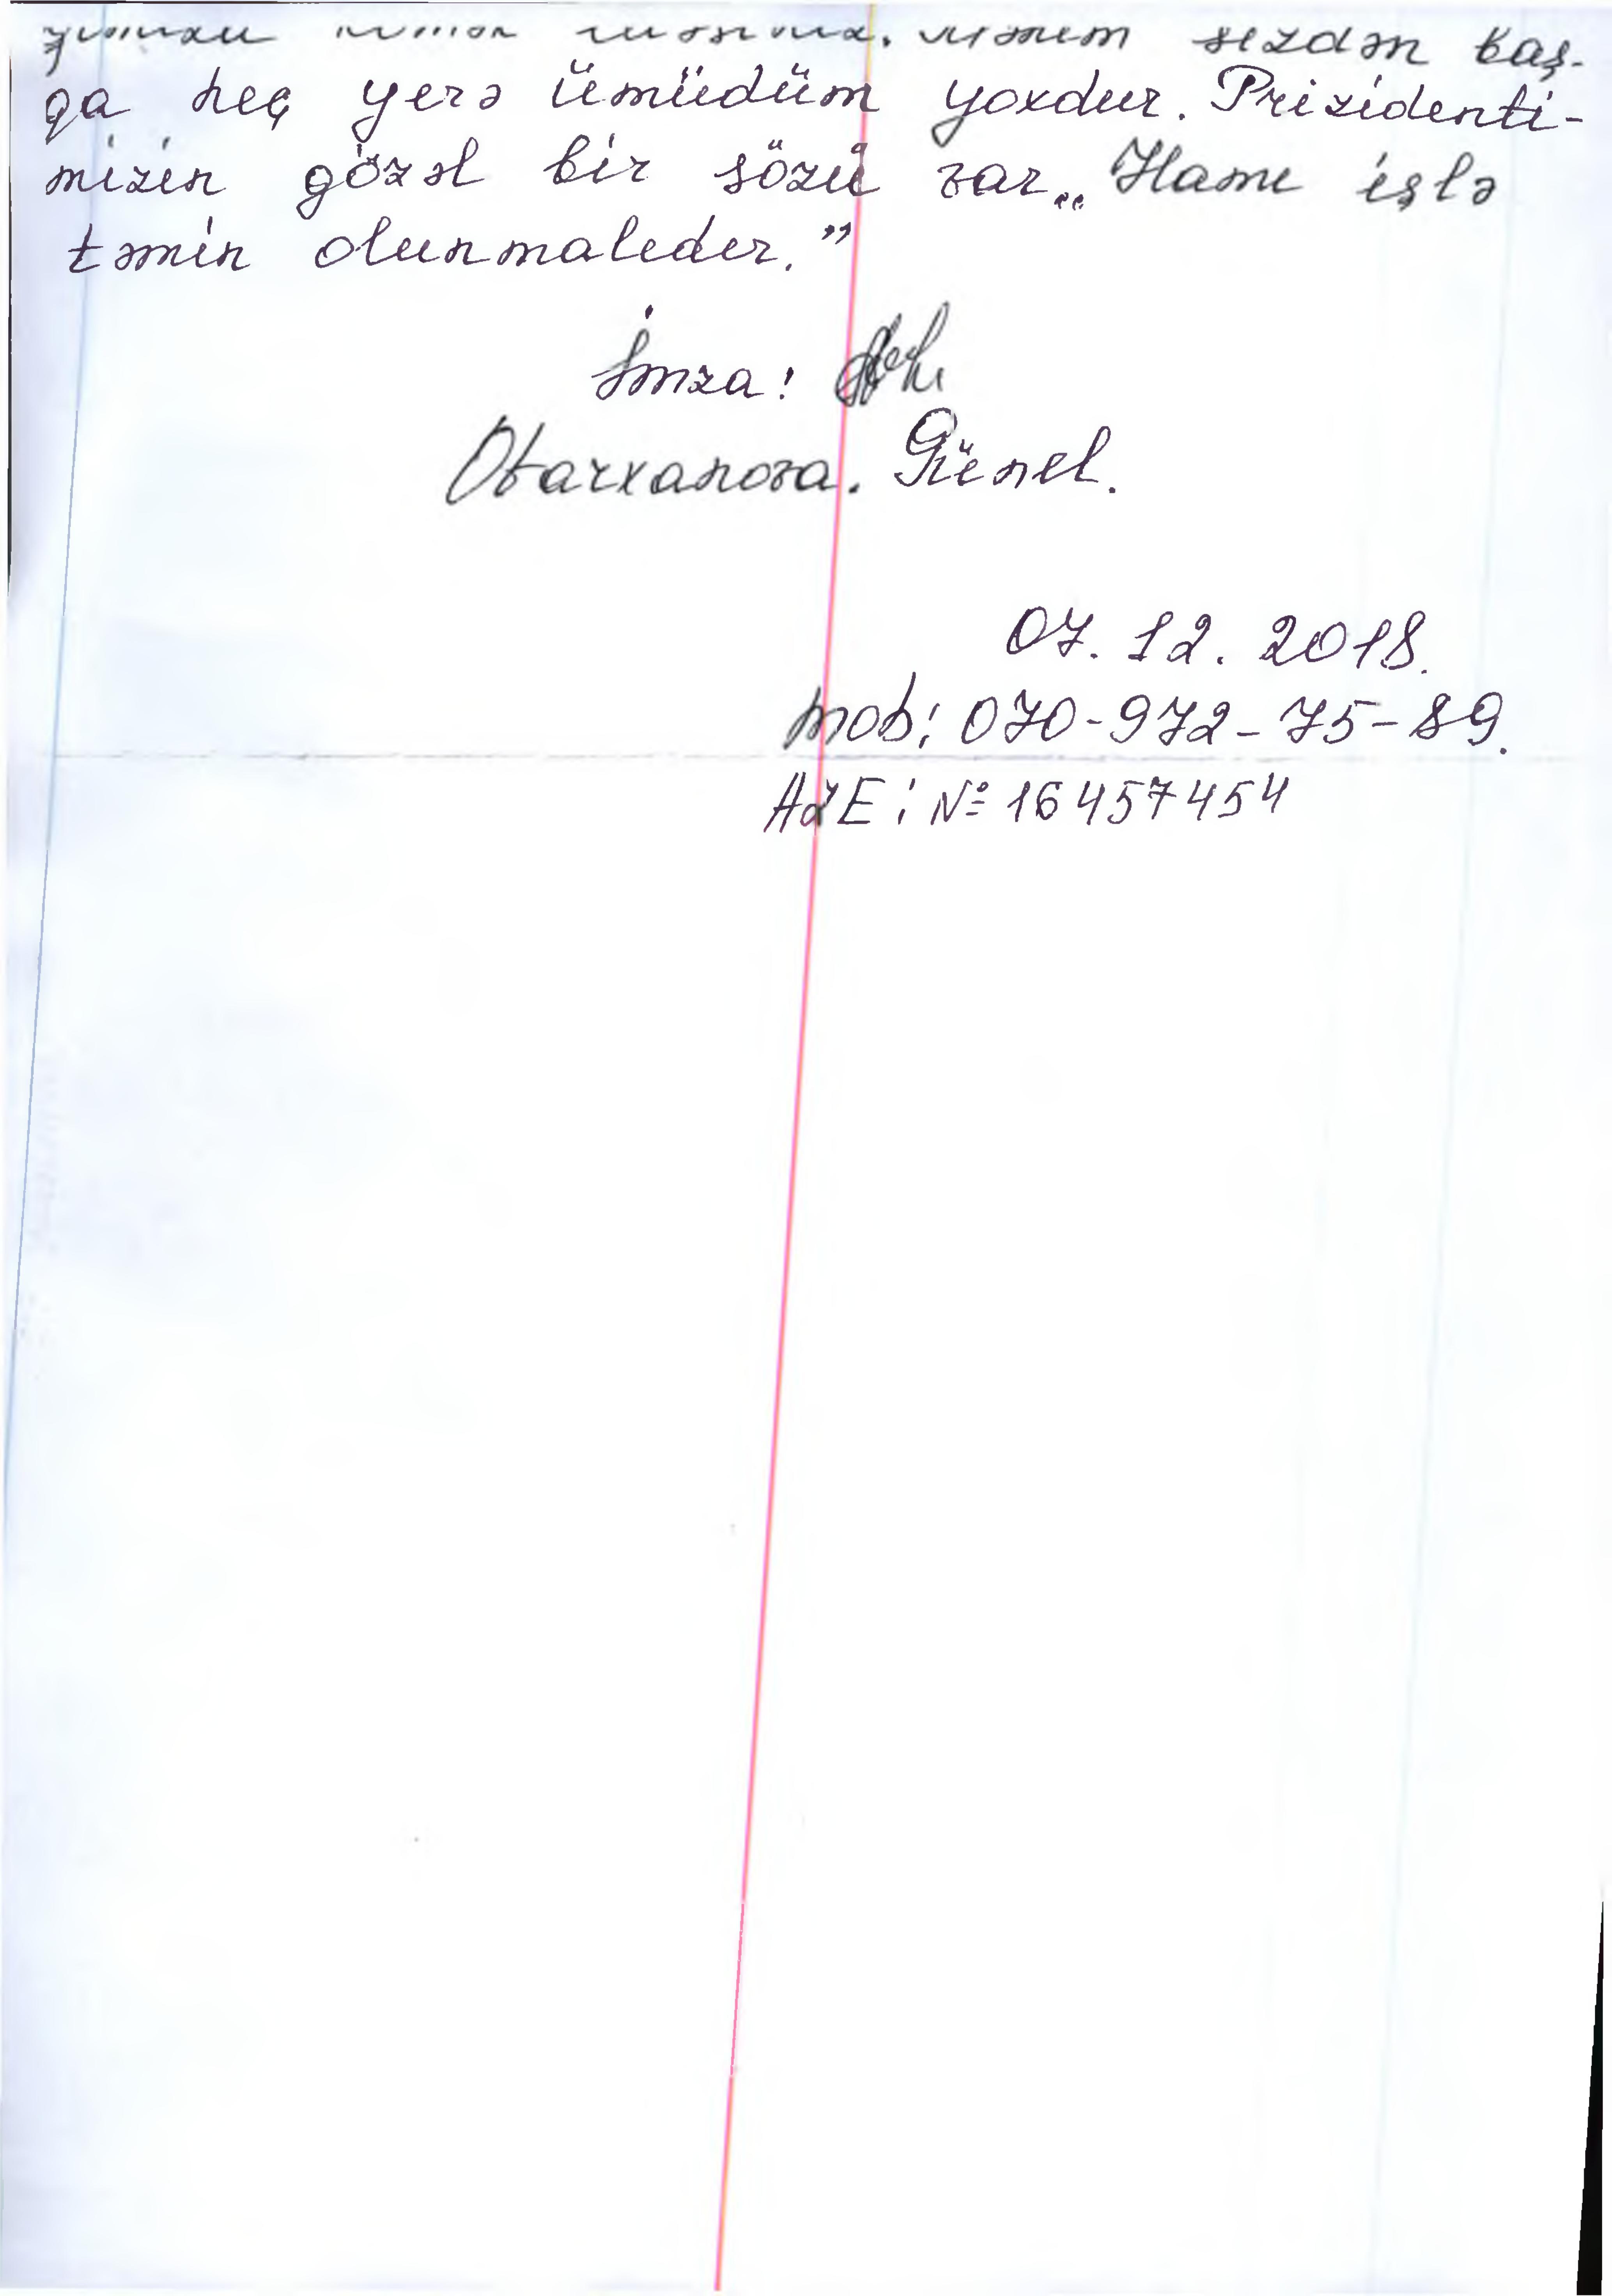 sizdən baş-
qa heç yerə ümüdüm yoxdur. Prizidenti-
mizin gözəl bir sözü var „Hamı işlə
təmin olunmalıdır.”
İmza:
Obarxanova. Günel.
07.12.2018.
mob: 070-972-75-89.
AZE: № 16457454